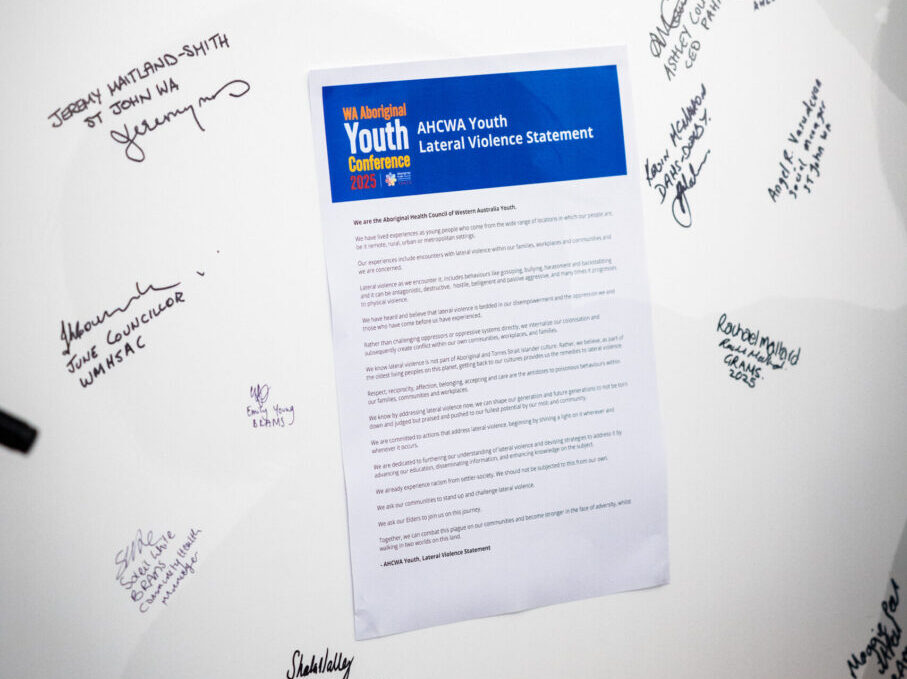 JEREMY MAITLAND-SMITH
ST JOHN WA
JUNE COUNCILLOR
WMHSAC
Emily Young
BRAMS
Soleil White
BRAMS
Community Health
Manager
WA Aboriginal
Youth
Conference
2025
AHCWA Youth
Lateral Violence Statement
We are the Aboriginal Health Council of Western Australia Youth.
We have lived experiences as young people who come from the wide range of locations in which our people are,
be it remote, rural, urban or metropolitan settings.
Our experiences include encounters with lateral violence within our families, workplaces and communities and
we are concerned.
Lateral violence as we encounter it, includes behaviours like gossiping, bullying, harassment and backstabbing
and it can be antagonistic, destructive, hostile, belligerent and passive aggressive, and many times it progresses
to physical violence.
We have heard and believe that lateral violence is bedded in our disempowerment and the oppression we and
those who have come before us have experienced.
Rather than challenging oppressors or oppressive systems directly, we internalize our colonisation and
subsequently create conflict within our own communities, workplaces, and families.
We know lateral violence is not part of Aboriginal and Torres Strait Islander culture. Rather, we believe, as part of
the oldest living peoples on this planet, getting back to our cultures provides us the remedies to lateral violence.
Respect, reciprocity, affection, belonging, accepting and care are the antidotes to poisonous behaviours within
our families, communities and workplaces.
We know by addressing lateral violence now, we can shape our generation and future generations to not be torn
down and judged but praised and pushed to our fullest potential by our mob and community.
We are committed to actions that address lateral violence, beginning by shining a light on it wherever and
whenever it occurs.
We are dedicated to furthering our understanding of lateral violence and devising strategies to address it by
advancing our education, disseminating information, and enhancing knowledge on the subject.
We already experience racism from settler-society. We should not be subjected to this from our own.
We ask our communities to stand up and challenge lateral violence.
We ask our Elders to join us on this journey.
Together, we can combat this plague on our communities and become stronger in the face of adversity, whilst
walking in two worlds on this land.
- AHCWA Youth, Lateral Violence Statement
ASHLEY
CEO
DAHS
Angel R.
Social manager
St John WA
GRAMS
2025
Maggie